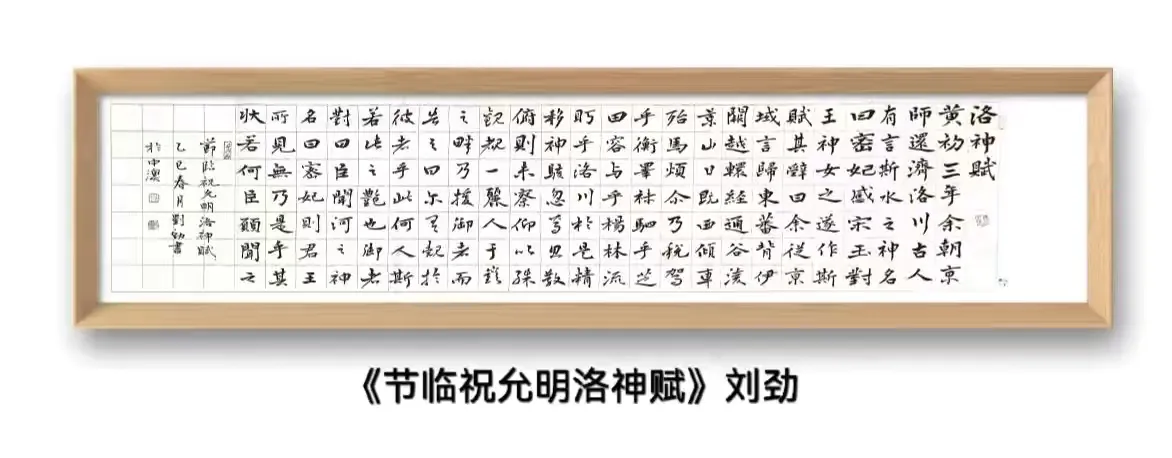 洛神賦
黄初三年余朝京
師還濟洛川古人
有言斯水之神名
曰宓妃感宋玉對
王神女之遂作斯
賦其辭曰余從京
域言歸東蕃背伊
闕越轘經通谷凌
景山日既西傾車
殆馬煩尒乃税駕
乎衡睪秣駟乎芝
田容与乎楊林流
眄乎洛川於是精
移神駭忽焉思散
俯則未察仰以殊
觀覩一麗人于巖
之畔乃援御者而
告之曰尔有覿於
彼者乎此何人斯
若此之艷也御者
對曰臣聞河之神
名曰宓妃則君王
所見無乃是乎其
狀若何臣願聞之
節臨祝允明洛神賦
乙巳春月劉勁書
於中
《节临祝允明洛神赋》刘劲